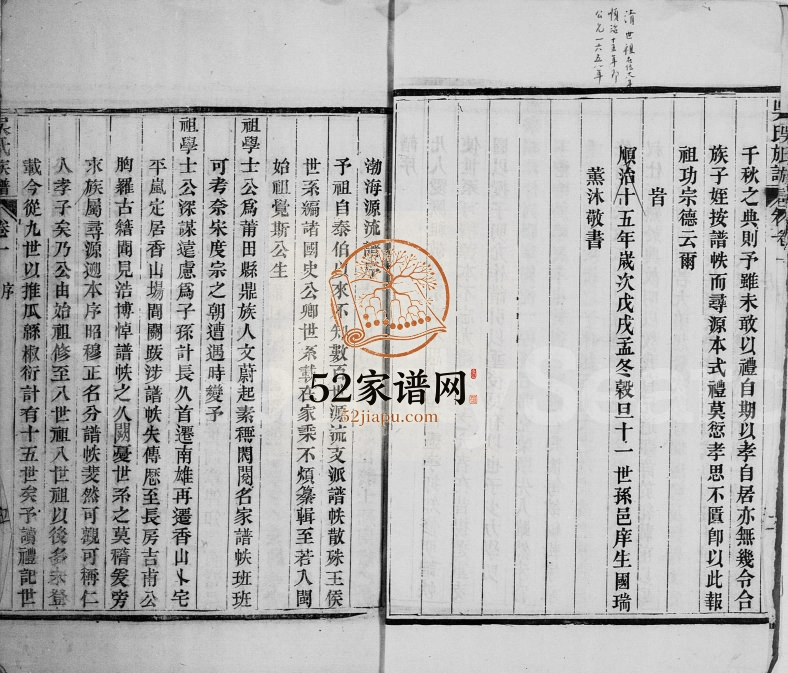 清世祖
順治十五年即
公元一六五八年
千秋之典則予雖未敢以禮自期以孝自居亦無幾令合
族子姪按譜帙而尋源本式禮莫愆孝思不匱卽以此報
祖功宗德云爾
旹
順治十五年歲次戊戌孟冬穀旦十一世孫邑庠生國瑞
薰沐敬書
渤海源流譜序
予祖自泰伯以來不知數百世源流支派譜帙散殊王侯
世系編諸國史公卿世系載在家乘不煩纂輯至若入閩
始祖覺斯公生
祖學士公爲莆田縣鼎族人文蔚起素稱閥閱名家譜帙班班
可考奈宋度宗之朝遭遇時變予
祖學士公深謀遠慮爲子孫計長久首遷南雄再遷香山卜宅
平嵐定居香山場間關跋涉譜帙失傳歷至長房吉甫公
胸羅古籍聞見浩博悼譜帙之久闕憂世系之莫稽爰旁
求族屬尋源遡本序昭穆正名分譜帙斐然可觀可稱仁
人孝子矣乃公由始祖修至八世祖八世祖以後多未登
載今從九世以推瓜緜椒衍計有十五世矣予讀禮記世
吳氏族譜
卷一
序
52家谱网
52jiapu.com